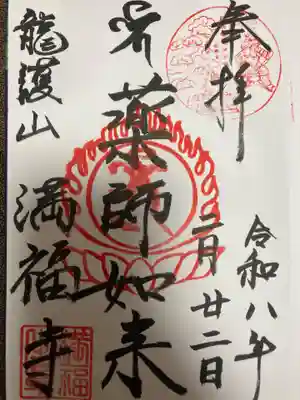 奉拝
令和八年
二月廿二日
薬師如来
龍護山
満福寺